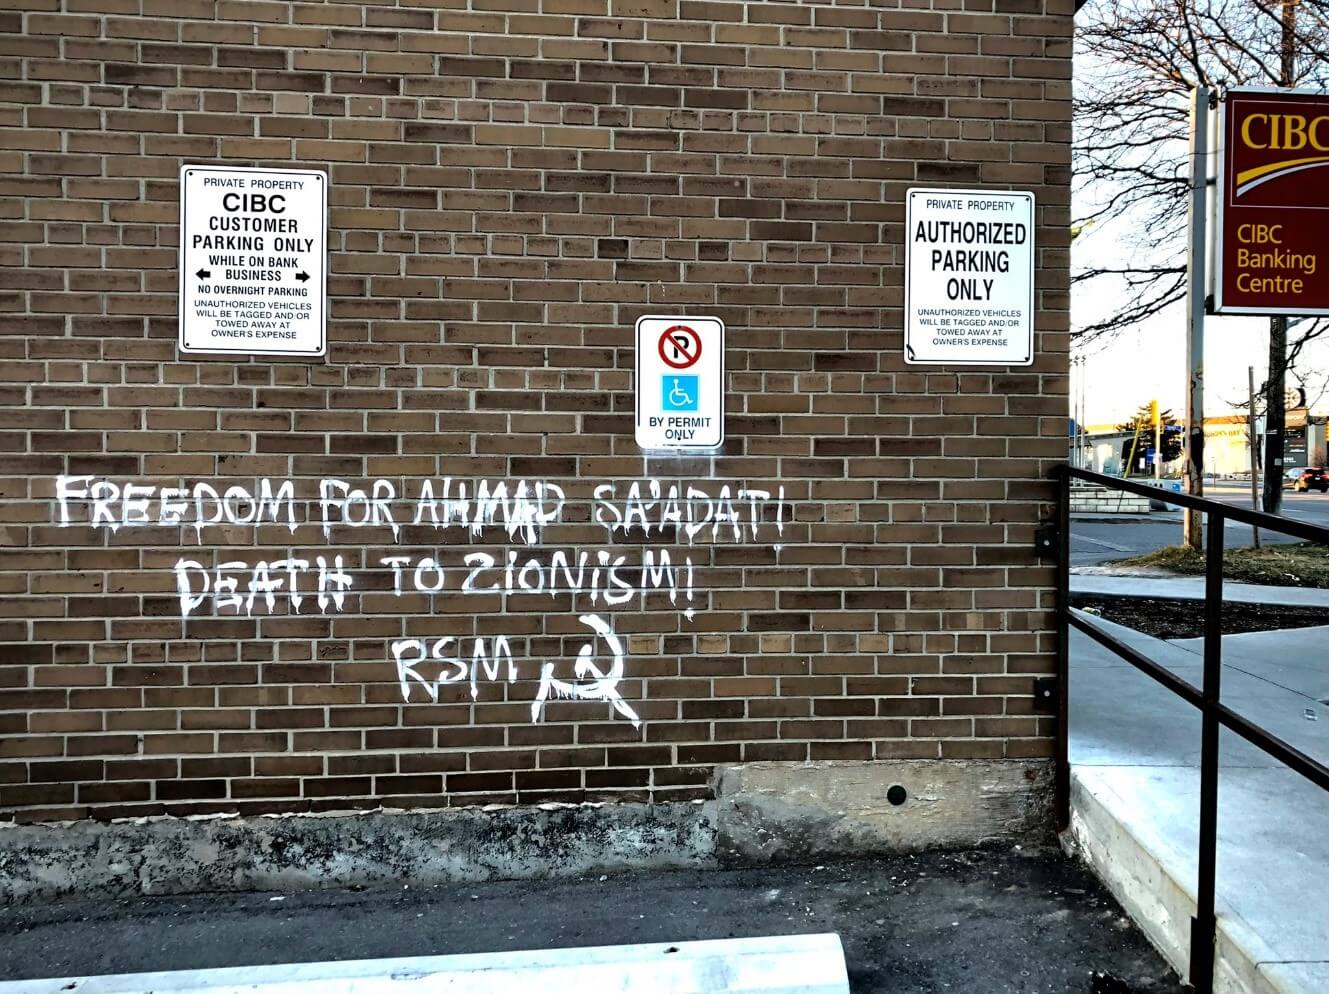 PRIVATE PROPERTY
CIBC
CUSTOMER
PARKING ONLY
WHILE ON BANK
BUSINESS
NO OVERNIGHT PARKING
UNAUTHORIZED VEHICLES
WILL BE TAGGED AND/OR
TOWED AWAY AT
OWNER'S EXPENSE
PRIVATE PROPERTY
AUTHORIZED
PARKING
ONLY
UNAUTHORIZED VEHICLES
WILL BE TAGGED AND/OR
TOWED AWAY AT
OWNER'S EXPENSE
P
BY PERMIT
ONLY
CIBC
CIBC
Banking
Centre
FREEDOM FOR AHMAD SA'ADAT!
DEATH TO ZIONISM!
RSM